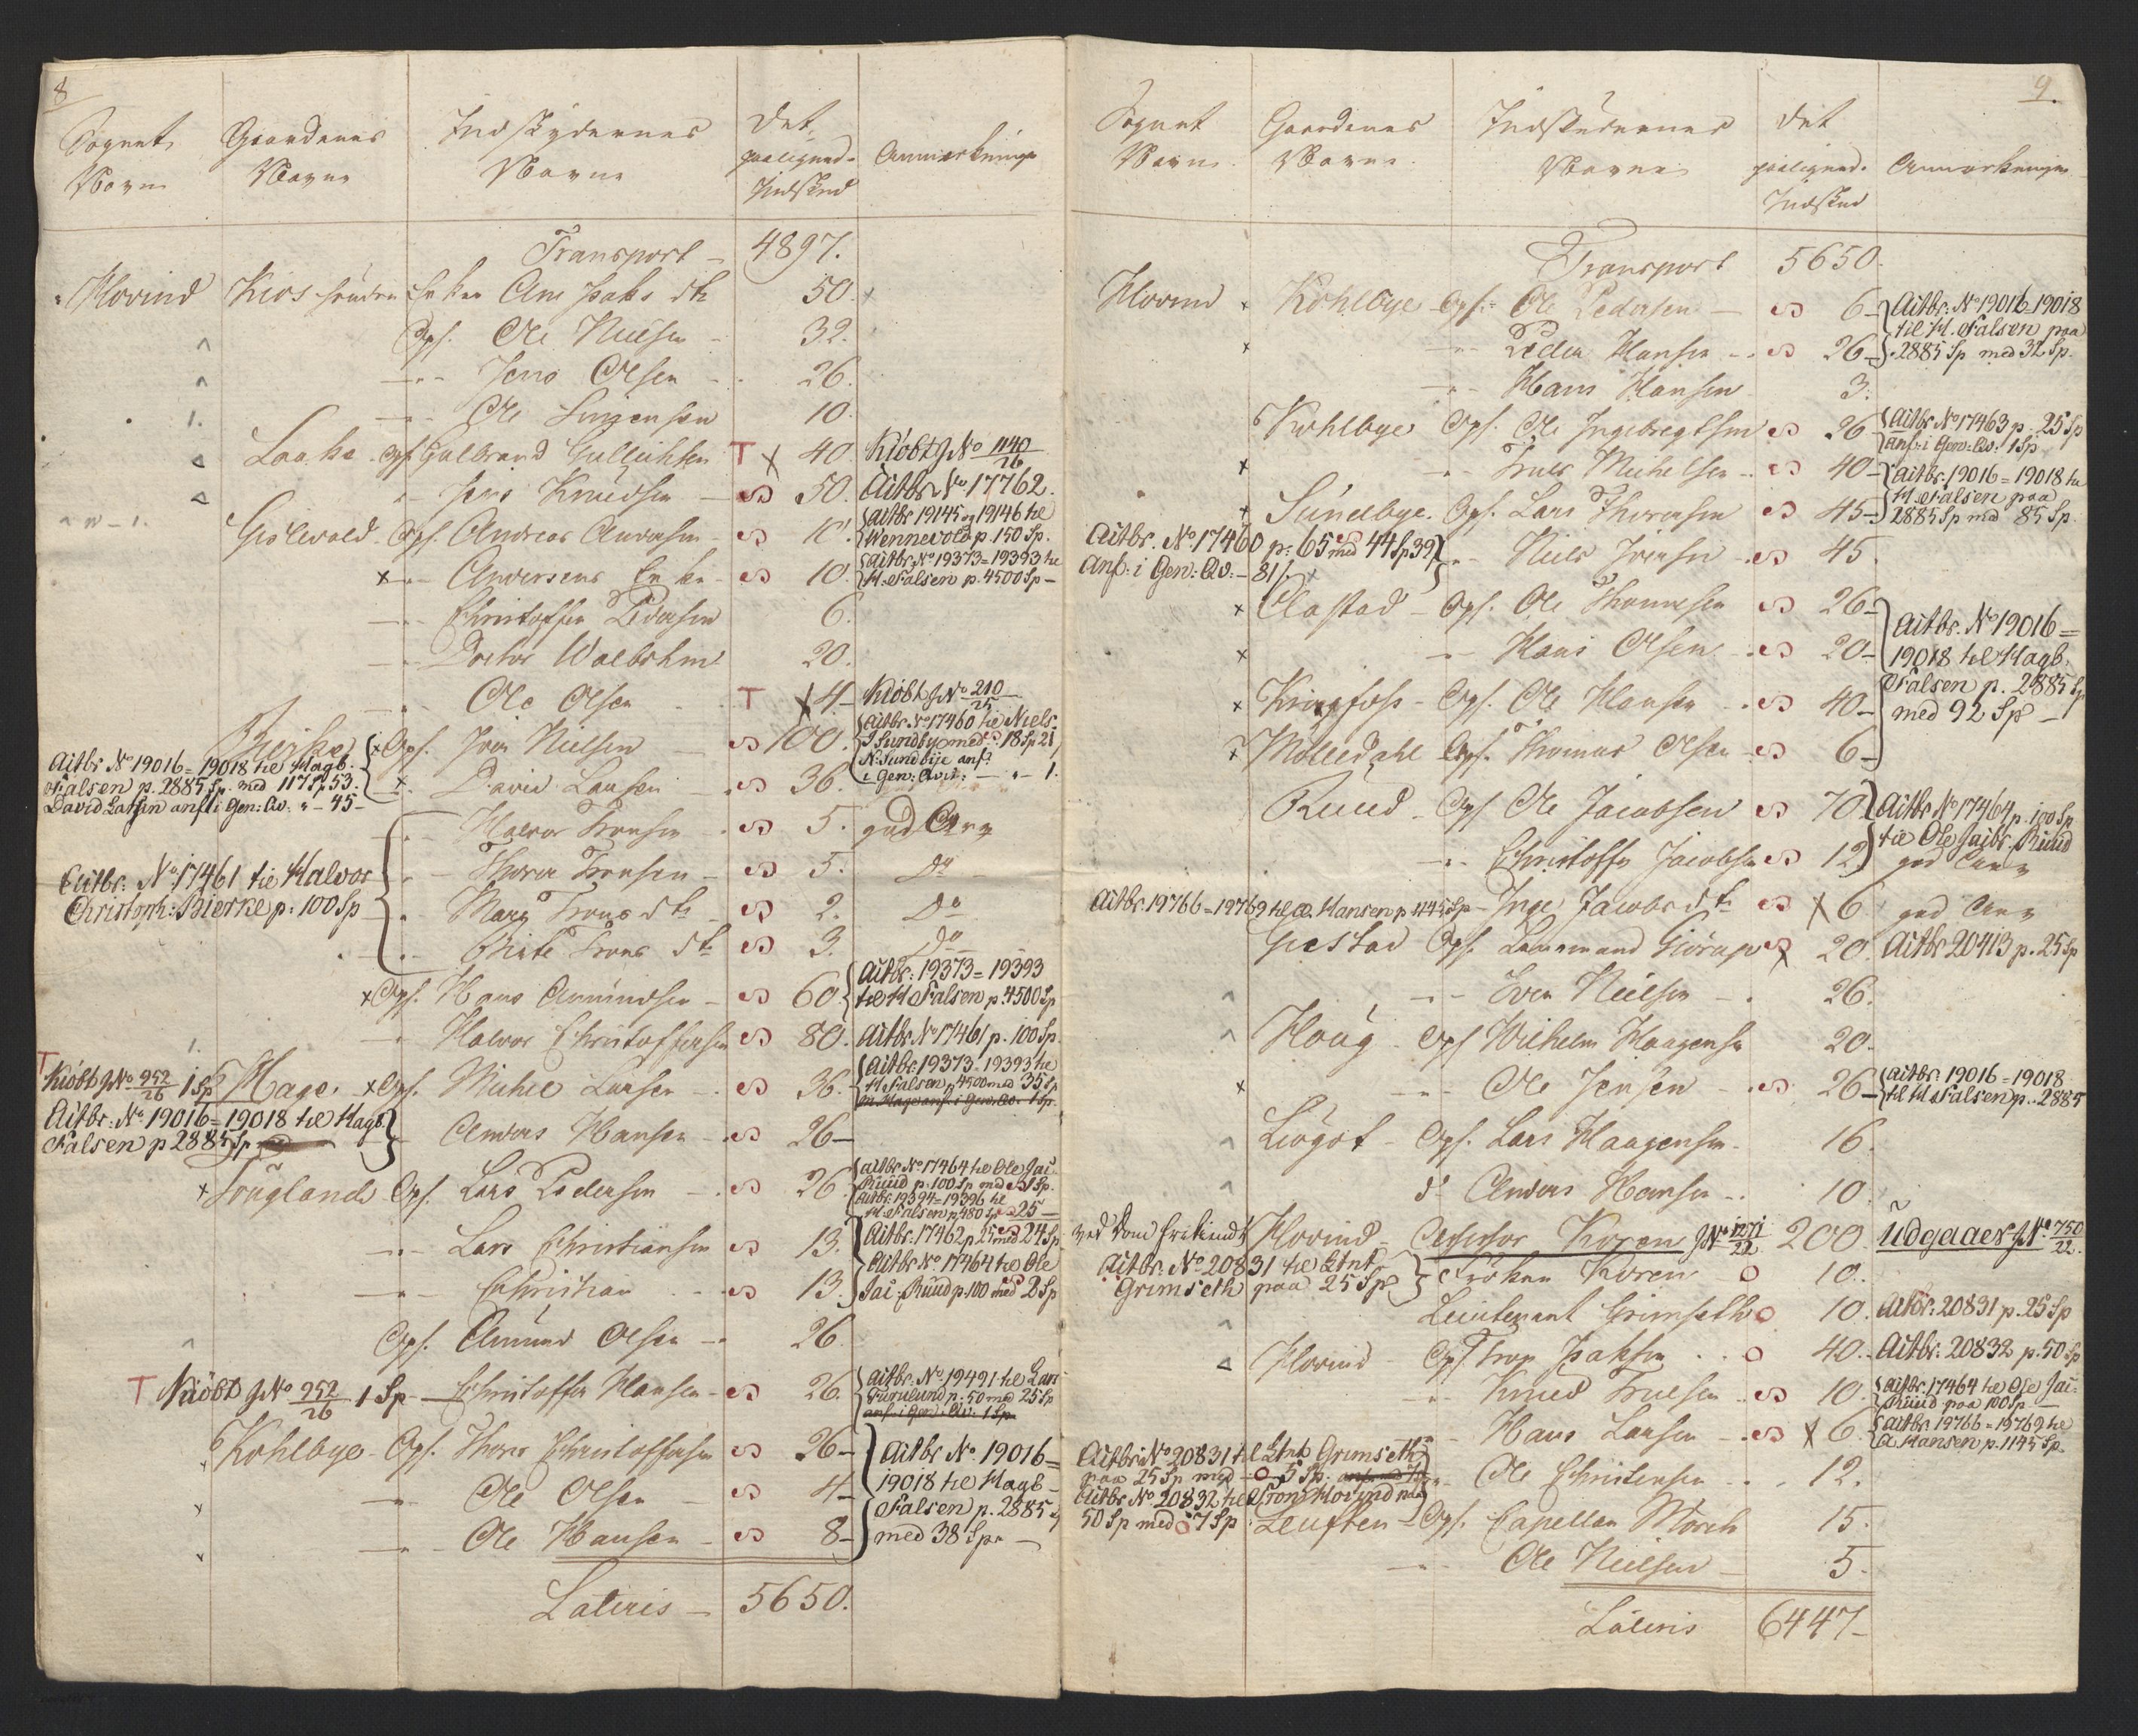 8
Sognets Navn
Gaardenes Navne
Indskydernes Navne
Det paalignede Indskud
Anmærkninger
Transport – 4897.
Hovind Kios søndre Enken Ane Isaks dtr 50.
Ops. Ole Nielsen – 32.
–"– Jens Olsen – 26.
–"– Ole Jørgensen 10.
Laake Ops. Gulbrand Gullichsen T x 40. Kiöbt J No 1140/26
" Jens Knudsen – 50. Aitbr No 17762.
Gislevold Ops. Andreas Andersen – 10. Aitbr 19145 og 19146 til Wennevold p. 150 Sp.
x –"– Andersens Enke – 10. Aitbr No 19373=19393 til H. Falsen p. 4500 Sp –
–"– Christoffer Pedersen 6.
–"– Doctor Walbohm 20.
–"– Ole Olsen T x 4 – Kiöbt J No 210/25
Bierke x Ops. Iver Nielsen – 100. Aitbr No 17460 til Niels I Sundby med 18 Sp 21 N. Sundbÿe anf: i Gen: Qvit: – " – 1.
Aitbr No 19016=19018 til Hagb. Falsen p. 2885 Sp. med 117 Sp 53.
David Larsen anf: i Gen: Qv. " – 45 –
x –"– David Larsen – 36.
–"– Halvor Tronsen 5. gud Arv
Aitbr: No 17461 til Halvor Christoph: Bierke p: 100 Sp
–"– Thorer Tronsen – 5. Do
–"– Mary Trons dtr 2. Do
–"– Birte Trons dtr 3. Do
x Ops. Hans Amundsen – 60. Aitbr: 19373=19393 til H Falsen p. 4500 Sp
–"– Halvor Christoffersen 80. Aitbr No 17461 p. 100 Sp
T Kiöbt J No 952/26 1 Sp Hage x Ops. Michel Larsen – 36. Aitbr. 19373=19393 til H Falsen p 4500 med 35 Sp
M. Hage anf: i Gen. Qv. 1 Sp.
Aitbr: No 19016=19018 til Hagb. Falsen p 2885 Sp
Anders Hansen – 26 –
x Fougland Ops. Lars Pedersen – 26. Aitbr No 17464 til Ole Jac: Ruud p. 100 Sp med 1 Sp.
Aitbr. 19394=19396 til H. Falsen p 480 Sp 25 –
–"– Lars Christiansen 13. Aitbr. 17462 p 25 med 24 Sp
–"– Christian – 13. Aitbr No 17464 til Ole Jac. Ruud p. 100 med 2 Sp
Ops. Amund Olsen – 26.
T Kiöbt J No 952/26 1 Sp – Christoffer Hansen – 26. Aitbr. No 19491 til Lars Furulund p: 50 med 25 Sp
anf. i Gen: Qv: 1 Sp
Kohlbye Ops. Thorer Christoffersen 26 – Aitbr No 19016=19018 til Hagb – Falsen p. 2885 med 38 Sp. –
–"– Ole Olsen – 4 –
–"– Ole Hansen – 8 –
Lateris – 5650.
9.
Sognets Navn
Gaardenes Navne
Indskydernes Navne
Det paalignede Indskud
Anmærkninger
Transport 5650.
Hovind x Kohlbye Ops: Ole Pedersen – 6 – Aitbr: No 19016=19018 til H. Falsen paa 2885 Sp med 32 Sp.
x –"– Peder Hansen – 26 –
–"– Hans Hansen 3.
Kohlbye Ops. Ole Ingebregtsen 26 Aitbr No 17463 p. 25 Sp
anf: i Gen: Qv: 1 Sp
x –"– Truls Michelsen – 40 – Aitbr. 19016=19018 til H. Falsen paa 2885 Sp med 85 Sp.
x Sundbye Ops. Lars Thoresen 45 –
Aitbr. No 17460 p: 65 med 44 Sp 39
anf: i Gen: Qv: – 81 /.
–"– Niels Iversen – 45.
x Clastad – Ops. Ole Thomesen 26 – Aitbr. No 19016=19018 til Hagb. Falsen p. 2885 Sp med 92 Sp –
x –"– Hans Olsen – 20 –
x Kringfoss – Ops. Ole Hansen – 40 –
x Mölledahl Ops. Thomas Olsen – 6 –
Ruud – Ops. Ole Jacobsen 70 Aitbr No 17464 p. 100 Sp til Ole Jacbs. Ruud
–"– Christoffer Jacobsen 12 gud Arv
Aitbr. 19766=19769 til A. Hansen p 1145 Sp – Inge Jacobs dtr x 6 gud Arv
Giestad Ops. Lensmand Giörup x 20. Aitbr 20413 p. 25 Sp
–"– Even Nielsen – 26.
Houg – Ops Wilhelm Haagensen 20.
x –"– Ole Jensen – 26 – Aitbr. 19016=19018 til H Falsen p. 2885
Liögot – Ops. Lars Haagensen 16.
d Anders Hansen – 10.
Hovind – Assessor Koren J No 1271/22 200. Udgaaer J No 750/22.
Aitbr. No 20831 til Ltnt Grimseth paa 25 Sp
Fröken Koren 10.
Leutenant Grimseth 10. Aitbr: 20831 p. 25 Sp
Hovind – Ops. Tron Isaksen – 40. Aitbr: 20832 p. 50 Sp
–"– Knud Truelsen – 10. Aitbr. 17464 til Ole Jac: Ruud paa 100 Sp –
–"– Hans Larsen – x 6. Aitbr. 19766=19769 til A Hansen p. 1145 Sp.
Aitbr No 20831 til Ltnt Grimseth paa 25 Sp med 5 Sp.
Aitbr No 20832 til Tron Hovind paa 50 Sp med 7 Sp
–"– Ole Christensen – 12.
Leuften – Ops. Capellan Mörch 15.
–"– Ole Nielsen – 5.
Lateris 6447 –